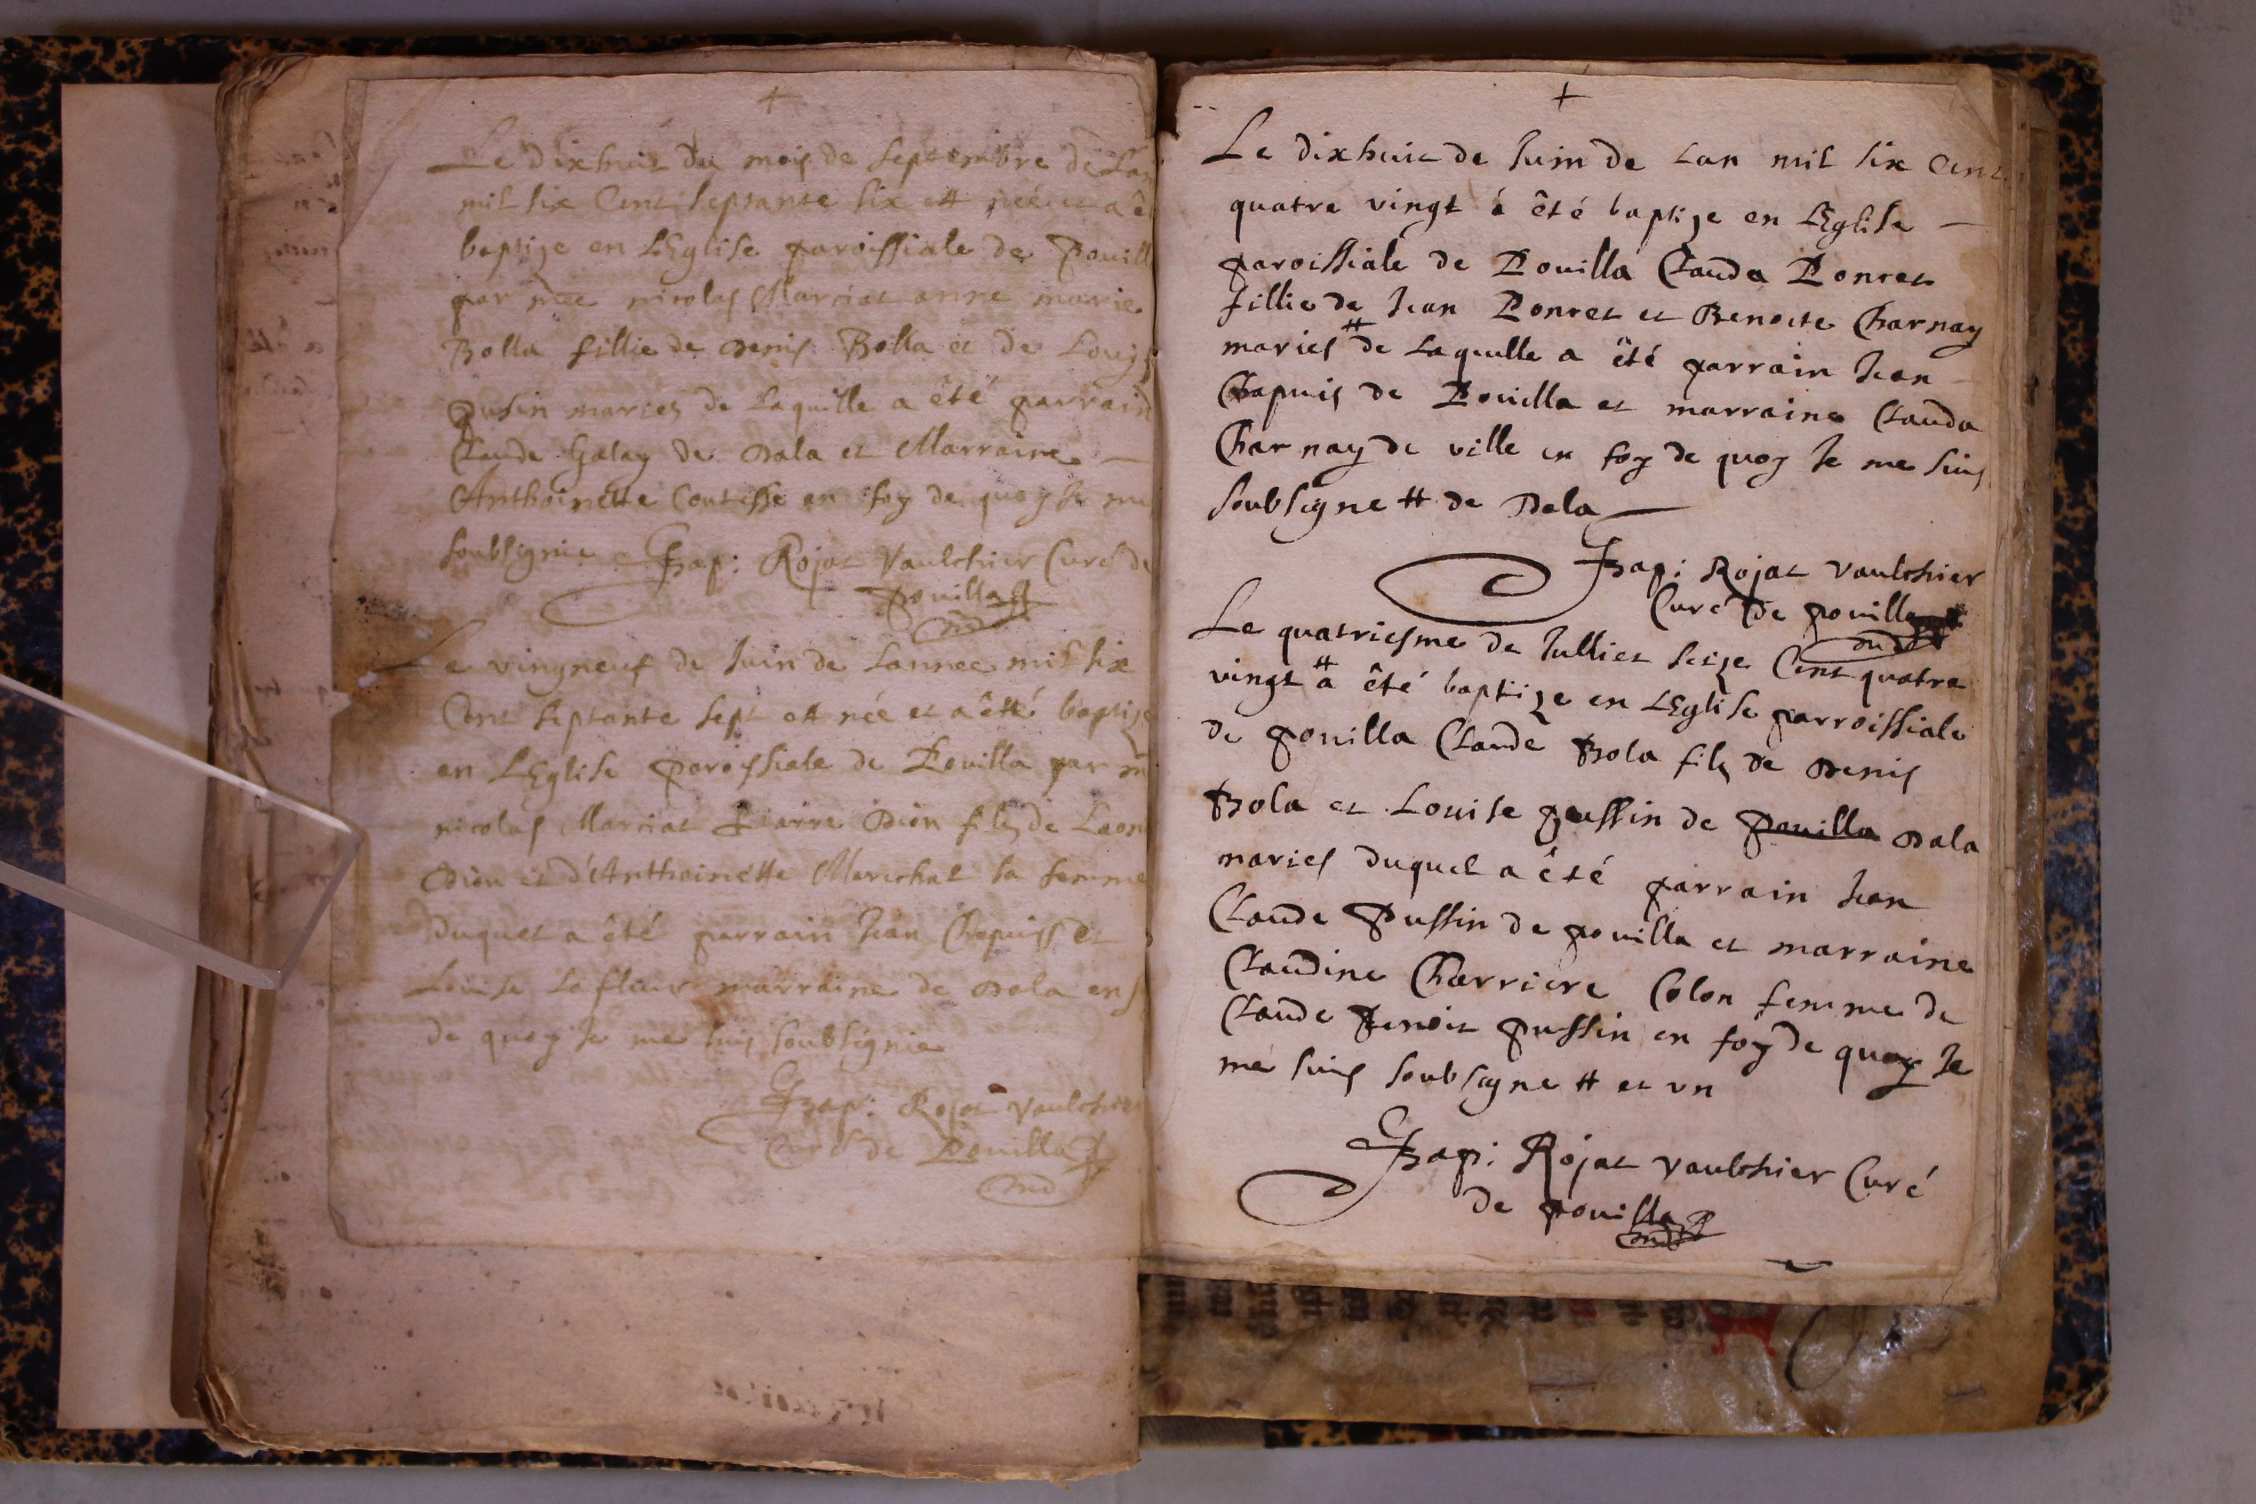 +
Le dixhuit du mois de septembre de Lan
mil six Cent septante six est née et a ê
baptize en LEglise paroissiale de Pouill
par mee nicolas Marciat anne marie
Bolla fillie de denis Bolla et de Louys
pusin maries de Laquille a êté parrain
Claude Galay de dala et Marraine
Anthoinette Contesse en foy de quoy Je me
soubsignie Bap: Rojat Vaulchier Curé de
pouilla
Le vingneuf de Juin de Lannee mil six
Cent septante sept est née et a êtté baptize
en LEglise paroissiale de Pouilla par m
nicolas Marciat Pierre Dion filz de Leon
Dion et d'Anthoinette Marechal sa femme
duquel a êté parrain Jean Chapuis et
Louise La fleur marraine de dala en f
de quoy Je me suis soubsignie
Bap: Rojat Vaulchier
Curé de Pouilla
+
Le dixhuit de Juin de Lan mil six Cent
quatre vingt à êté baptize en LEglise
paroissiale de Pouilla Clauda Poncet
fillie de Jean Poncet et Benoite Charnay
maries # de Laquille a êté parrain Jean
Chapuis de Pouilla et marraine Clauda
Charnay de ville en foy de quoy Je me suis
soubsigne # de Dala
Bap: Rojat Vaulchier
Curé de pouilla
Le quatriesme de Jullier seize Cent quatre
vingt # a êté baptize en LEglise parroissiale
de pouilla Claude Bola filz de denis
Bola et Louise pussin de pouilla dala
maries duquel a êté parrain Jean
Claude Pussin de pouilla et marraine
Claudine Charriere Colon femme de
Claude Benoit pussin en foy de quoy Je
me suis soubsigne # et un
Bap: Rojat Vaulchier Curé
de pouilla